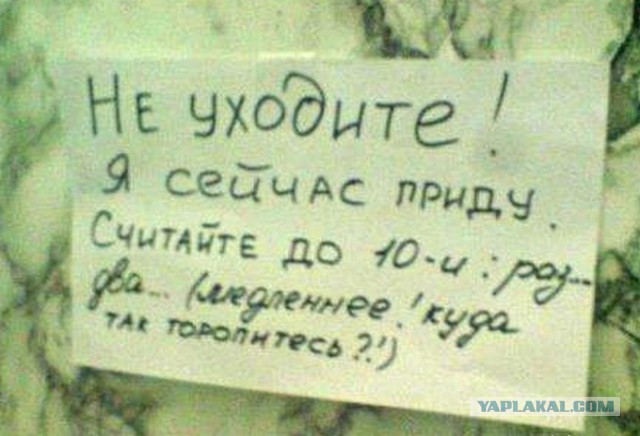 Не уходите!
Я сейчас приду.
Считайте до 10-и: роз...
два... (медленнее! куда
так торопитесь?!)
YAPLAKAL.COM